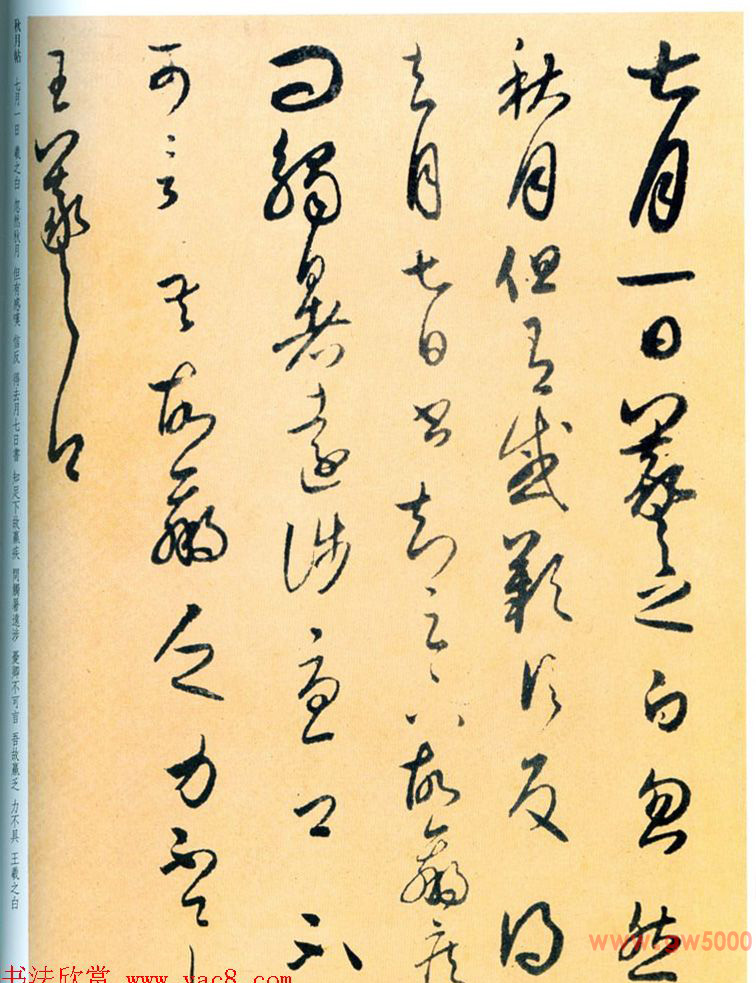 七月一日羲之白忽然
秋月但有感歎信反得
去月七日書知足下故羸疾
問觸暑遠涉憂卿不
可言吾故羸乏力不具
王羲之白
秋月帖 七月一日 羲之白 忽然秋月 但有感嘆 信反 得去月七日書 知足下故羸疾 問觸暑遠涉 憂卿不可言 吾故羸乏 力不具 王羲之白
書法欣賞 www.yac8.com